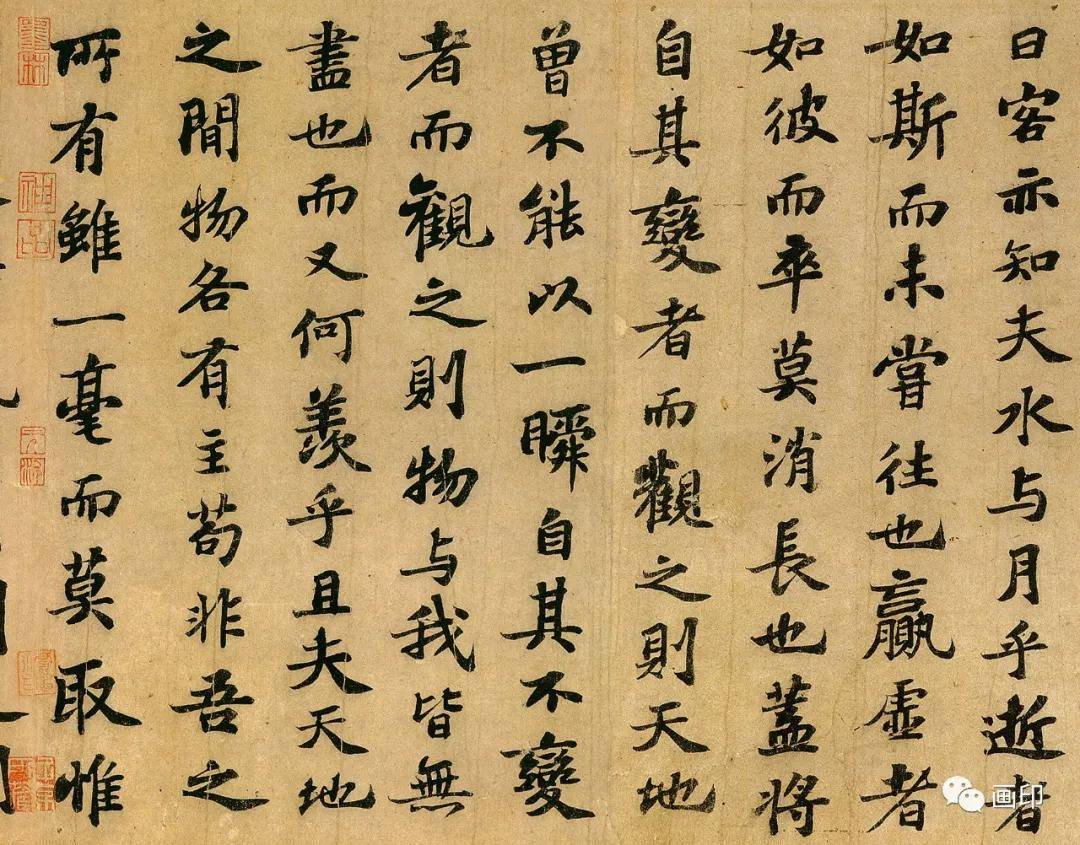 曰客亦知夫水与月乎逝者
如斯而未嘗往也贏虛者
如彼而卒莫消長也蓋將
自其變者而觀之則天地
曾不能以一瞬自其不變
者而觀之則物与我皆無
盡也而又何羨乎且夫天地
之間物各有主苟非吾之
所有雖一毫而莫取惟
神品
画印